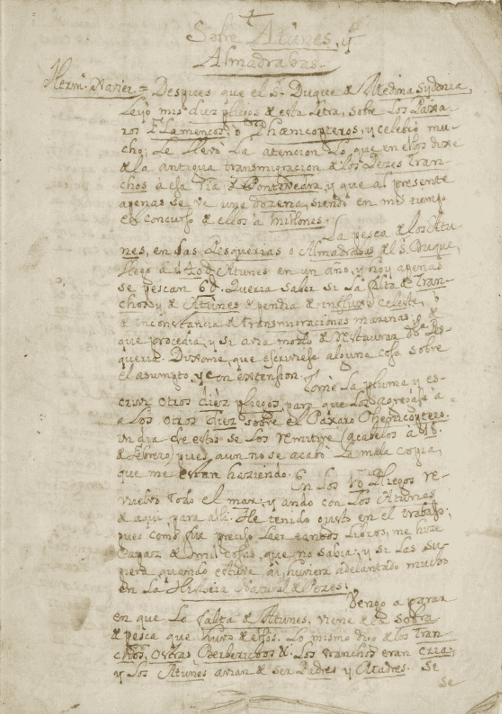 Sobre Atunes, y
Almadrabas.
Herm.º Xavier = Despues que el S.r Duque de Medina Sydonia,
Leyò mis diez pliegos de esta Letra, sobre Los Paxa-
ros Flamencos, o Phoenicopteros, y celebrò mu-
cho; Le llevò La atencion Lo que en ellos dixe
de la antigua transmigracion de los Pezes Tran-
chos a essa Ria de Pontevedra, y que al presente
apenas se ve una dozena, siendo en mis tiempo
el concurso de ellos a millones.
La pesca de los Atu-
nes, en las Pesquerias o Almadrabas del S. Duque,
llegò a Atunes en un año, y hoy apenas
se pescan Queria saber si La falta de Tran-
chos y de Atunes dependia de influxo celeste,
o de inconstancia de transmigraciones marinas, o de
que procedia, y si avia modo de restaurar
Dixome, que escriviese alguna cosa sobre
el asumpto, y con extension.
Tomè La pluma y es-
crivi otros diez pliegos, para que los agregase a
a los otros diez sobre el Paxaro Phenicoptero.
Un dia de estos se los remitirè (acabelos a
de Febrero) pues, aun no se acabò La mala copia,
que me estan haziendo.
En Los 10 Pliegos re-
vuelvo todo el mar, y ando con Los Atunes
de aqui, para alli. He tenido gusto en el trabajo;
pues como fue preciso Leer tantos Libros, me hize
capaz de mil cosas, que no sabia; y si las su-
piera quando estuve ai, huviera adelantado mucho
en La Historia Natural de Pezes.
Vengo a parar
en que La falta de Atunes, viene de la sobra
de pesca que huvo de ellos. Lo mismo digo de los Tran-
chos, Ostras Los tranchos eran crias
y Los Atunes avian de ser Padres y Madres. Se
Se